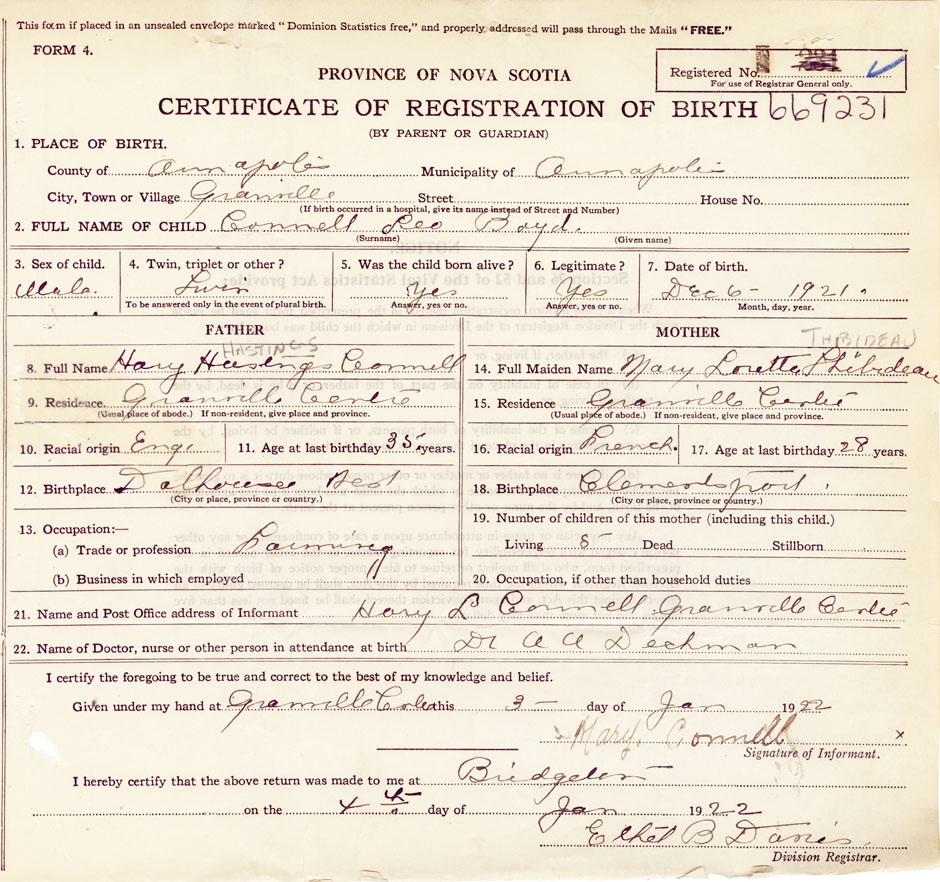 This form if placed in an unsealed envelope marked "Dominion Statistics free," and properly addressed will pass through the Mails "FREE."
FORM 4.
Registered No.
For use of Registrar General only.
PROVINCE OF NOVA SCOTIA
CERTIFICATE OF REGISTRATION OF BIRTH 669231
(BY PARENT OR GUARDIAN)
1. PLACE OF BIRTH.
County of Annapolis Municipality of Annapolis
City, Town or Village Granville Street House No.
(If birth occurred in a hospital, give its name instead of Street and Number)
2. FULL NAME OF CHILD Connell Leo Boyd.
(Surname) (Given name)
3. Sex of child. 4. Twin, triplet or other? 5. Was the child born alive? 6. Legitimate? 7. Date of birth.
Male. Twin Yes Yes Dec 6- 1921.
To be answered only in the event of plural birth. Answer, yes or no. Answer, yes or no. Month, day, year.
FATHER MOTHER
HASTINGS THIBIDEAU
8. Full Name Hary Hastings Connell 14. Full Maiden Name Mary Loretta Thibideau
9. Residence Granville Centre 15. Residence Granville Centre
(Usual place of abode.) If non-resident, give place and province. (Usual place of abode.) If non-resident, give place and province.
10. Racial origin Eng. 11. Age at last birthday 35 years. 16. Racial origin French. 17. Age at last birthday 28 years.
12. Birthplace Dalhousee West 18. Birthplace Clementsport.
(City or place, province or country.) (City or place, province or country.)
13. Occupation:— 19. Number of children of this mother (including this child.)
(a) Trade or profession Farming Living 5- Dead Stillborn
(b) Business in which employed 20. Occupation, if other than household duties
21. Name and Post Office address of Informant Hary L Connell Granville Centre
22. Name of Doctor, nurse or other person in attendance at birth Dr A A Dechman
I certify the foregoing to be true and correct to the best of my knowledge and belief.
Given under my hand at Granville Centre this 3- day of Jan 1922
Mary Connell x
Signature of Informant.
I hereby certify that the above return was made to me at Bridgetown
on the 4 day of Jan 1922
Ethel B Davis
Division Registrar.